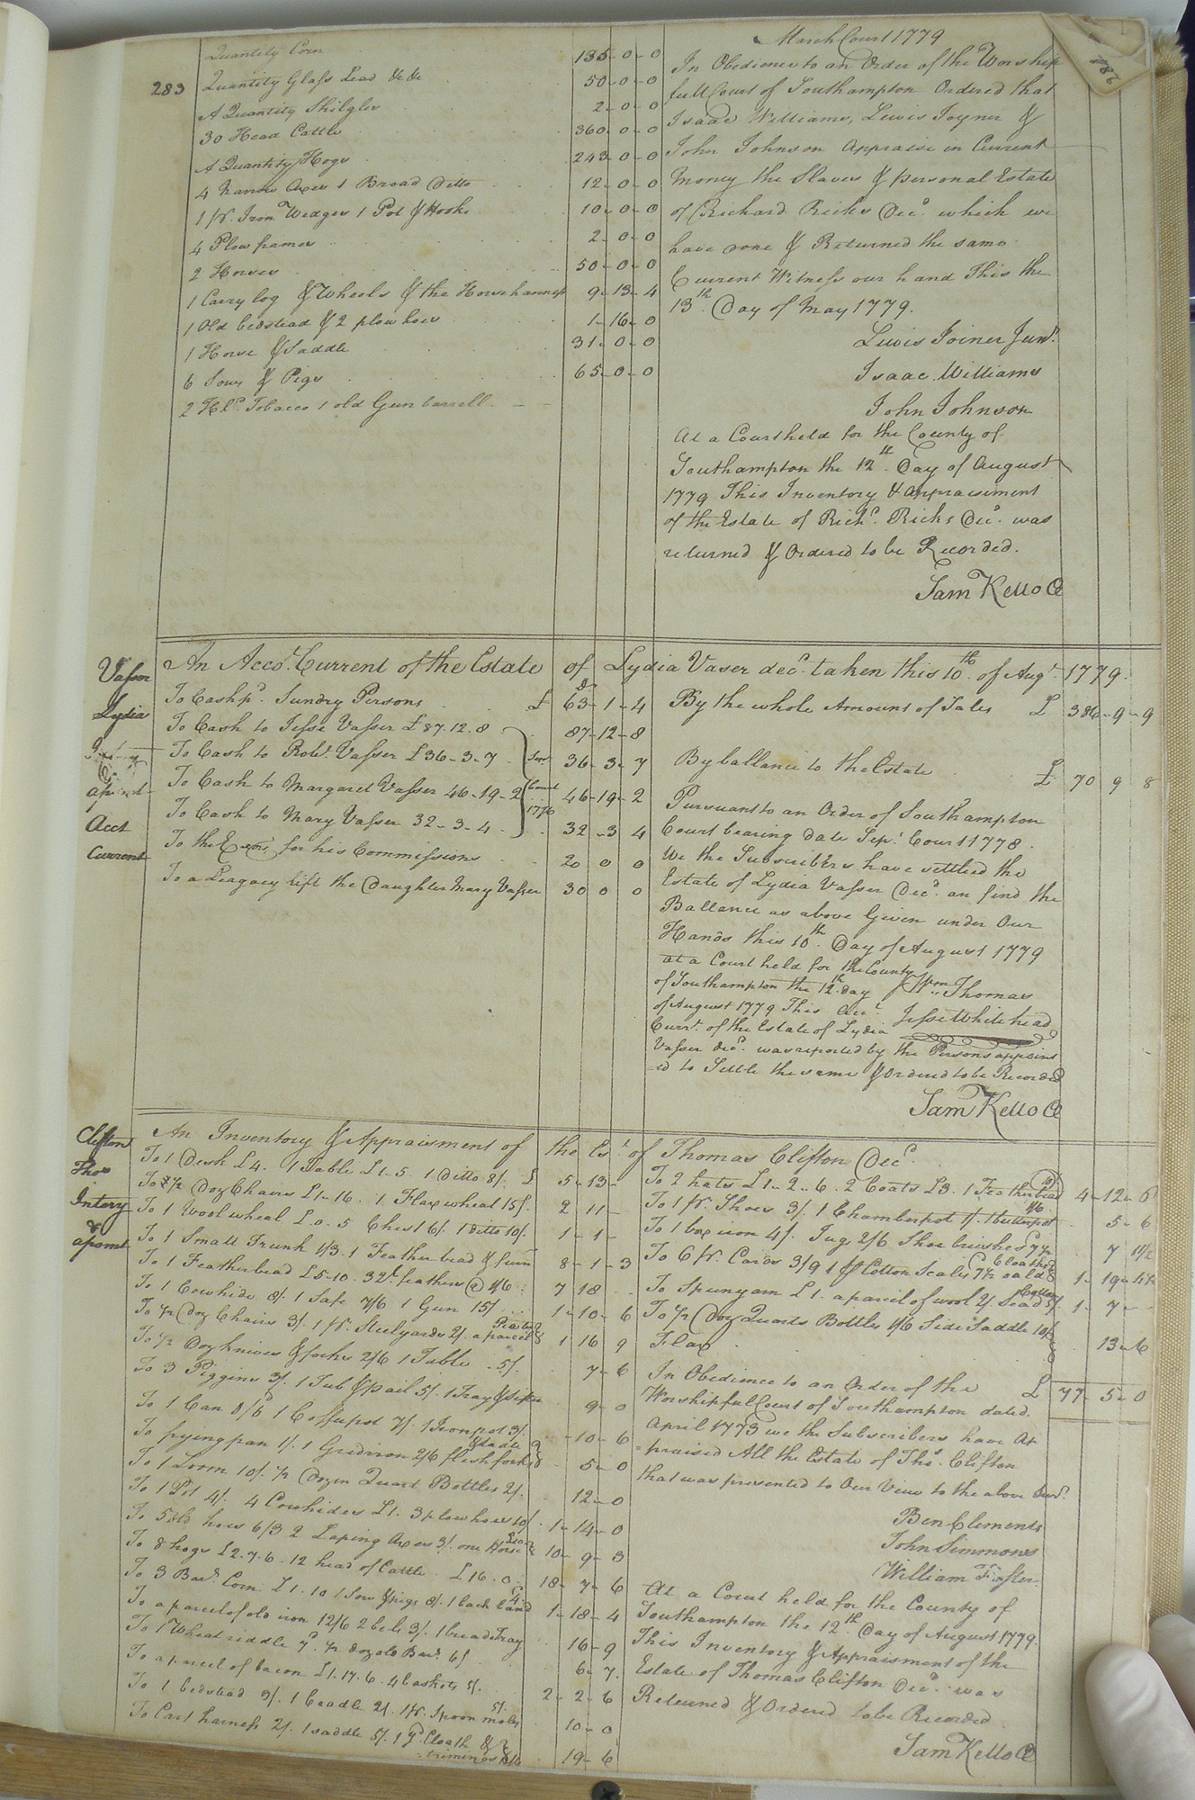 283
Quantity Corn 135-0-0
Quantity Glass Lead &c &c 50-0-0
A Quantity Shilgles 2-0-0
30 Head Cattle 360-0-0
A Quantity Hogs 243-0-0
4 Narrow Axes 1 Broad Ditto 12-0-0
1 pr. Iron Wedges 1 Pot & Hooks 10-0-0
4 Plow frames 2-0-0
2 Horses 50-0-0
1 Carry log & Wheels & the Horse harness 9-13-4
1 Old bedstead & 2 plow hoes 1-16-0
1 Horse & Saddle 31-0-0
6 Sows & Pigs 65-0-0
2 Hds. Tobacco 1 old Gun barrell
March Court 1779
In Obedience to an Order of the Worship
full Court of Southampton Ordered that
Isaac Williams, Lewis Joyner &
John Johnson Appraise in Current
money the Slaves & personal Estate
of Richard Ricks Decd. which we
have done & Returned the same
Current Witness our hand This the
13th. Day of May 1779.
Lewis Joiner Junr.
Isaac Williams
John Johnson
At a Court held for the County of
Southampton the 12th. Day of August
1779 This Inventory & Appraisment
of the Estate of Richd. Ricks Decd. was
returned & Ordered to be Recorded.
Sam Kello CC
Vasser
Lydia
apmt
Acct
Current
An Accot. Current of the Estate of Lydia Vaser decd. taken this 10th of Augt. 1779.
Dr
To Cash pd. Sundry Persons £ 63-1-4
To Cash to Jesse Vasser £87.12.8 87-12-8
To Cash to Robt. Vasser £36-3-7 36-3-7
To Cash to Margaret Vasser 46-19-2 46-19-2
1776
To Cash to Mary Vasser 32-3-4 32-3 4
To the Exors for his Commissions 20 0 0
To a Leagacy left the Daughter Mary Vasser 30 0 0
By the whole Amount of Sales £ 386-9-9
By ballance to the Estate £ 70 9 8
Pursuant to an Order of Southampton
Court bearing date Sepr. Court 1778.
We the Subscribers have settled the
Estate of Lydia Vasser Decd. an find the
Ballance as above Given under Our
Hands this 10th. Day of August 1779
Wm. Thomas
Jesse Whitehead
At a Court held for the County
of Southampton the 12th day
of August 1779 This Acct.
Currt. of the Estate of Lydia
Vasser decd. was reported by the Persons appoint
-ed to Settle the same & Ordered to be Recorded
Sam Kello CC
Clifton
Thos
Intery
&
apmt
An Inventory & Appraisment of the Est. of Thomas Clifton Decd.
To 1 Desk £4. 1 Table £1.5 1 Ditto 8/. £ 5-13-
To 1/2 Doz Chairs £1-16. 1 Flax wheal 15/. 2 11-
To 1 Wool wheal £.0.5 Chest 6/. 1 Ditto 10/. 1-1-
To 1 Small Trunk 1/3. 1 Feather bed & furn 8-1-3
To 1 Featherbead £5-10. 32 lb feathers @ 1/6 7 18
To 1 Cowhide 8/. 1 Safe 7/6 1 Gun 15/. 1-10-6
To 1/2 Doz Chairs 3/. 1 pr. Steelyards 2/. a parcel 1 16 9
To 1/2 Doz knives & forks 2/6 1 Table 5/. 7-6
To 3 Piggins 3/. 1 Tub & pail 5/. 1 Tray & sifter 9-0
To 1 Can 8/6 1 Coffupot 7/. 1 Iron pot 3/. -10-6
To frying pan 1/. 1 Gridiron 2/6 flesh fork & ladle 5-0
To 1 Loom 10/. 1/2 Dozen Quart Bottles 2/. 12-0
To 1 Pot 4/. 4 Cowhides £1. 3 plow hoes 10/. 1-14-0
To 5 old hoes 6/3 2 Laping Axes 3/. one Horse 10-9-3
To 8 hogs £2.7.6. 12 head of Cattle £16.0. 18-7-6
To 3 Bars. Corn £1.10 1 Sow & pigs 8/. 1 back band 1-18-4
To a parcel of old iron 12/6 2 bels 3/. 1 bread Tray 16-9
To 1 Wheat riddle 1/2 doz old Bars. 6/. 6-7.
To a parcel of bacon £1.17.6. 4 baskets 5/. 2-2-6
To 1 bedstead 3/. 1 Craddle 2/. 1 pr. Spoon molds 5/. 10-0
To Cart harness 2/. 1 saddle 5/. 1 yd. Cloath & triming 19-6
To 2 hats £1-2-6. 2 Coats £3. 1 Feather bead 4-12-6
To 1 pr. Shoes 3/. 1 Chamberpot 1/. 1 butterpot 1/6. 5-6
To 1 box iron 4/. Jug 2/6 Shoe brushes 7 11 1/2
To 6 pr. Cards 3/9 1 pr Cotton Scales 1-19-4 1/2
To Spunyarn £1. a parcel of wool 2/. 1-7-
To 1/2 Doz Quarts Bottles 1/6 Side Saddle 10/ &
Flax 13-6
£ 77-5-0
In Obedience to an Order of the
Worshipful Court of Southampton dated
April 1773 we the Subscribers have Ap
praised All the Estate of Thos. Clifton
that was presented to Our View to the above Ordr.
Ben Clements
John Simmons
William Foster
At a Court held for the County of
Southampton the 12th. Day of August 1779.
This Inventory & Appraisment of the
Estate of Thomas Clifton Decd. was
Returned & Ordered to be Recorded
Sam Kello CC